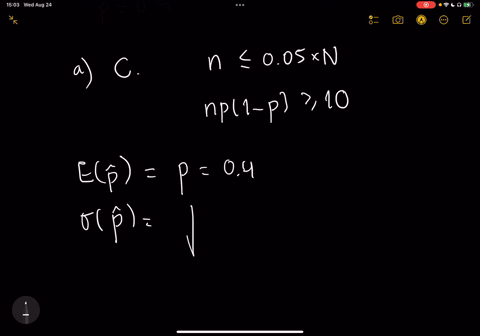 15:03 Wed Aug 24
a) C. n ≤ 0.05×N
np(1-p) ≥ 10
E(p̂) = p = 0.4
σ(p̂) = √